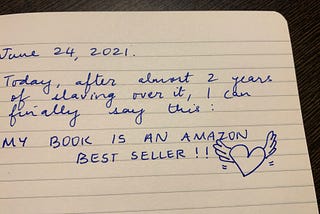 June 24, 2021.
Today, after almost 2 years
of slaving over it, I can
finally say this:
MY BOOK IS AN AMAZON
BEST SELLER!!